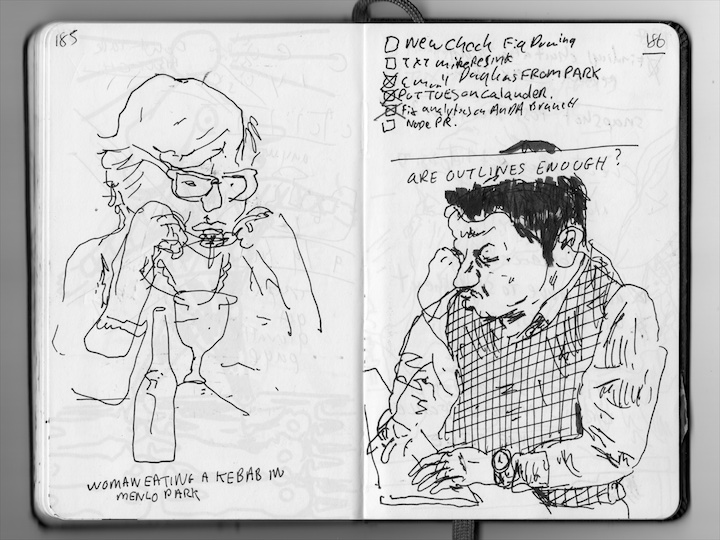 185
WOMAN EATING A KEBAB IN
MENLO PARK
186
New Check Fig
TXT mike
Douglas FROM PARK
PUT TUES on Calander.
Fix analytics on AndA Branch
Node PR.
ARE OUTLINES ENOUGH?